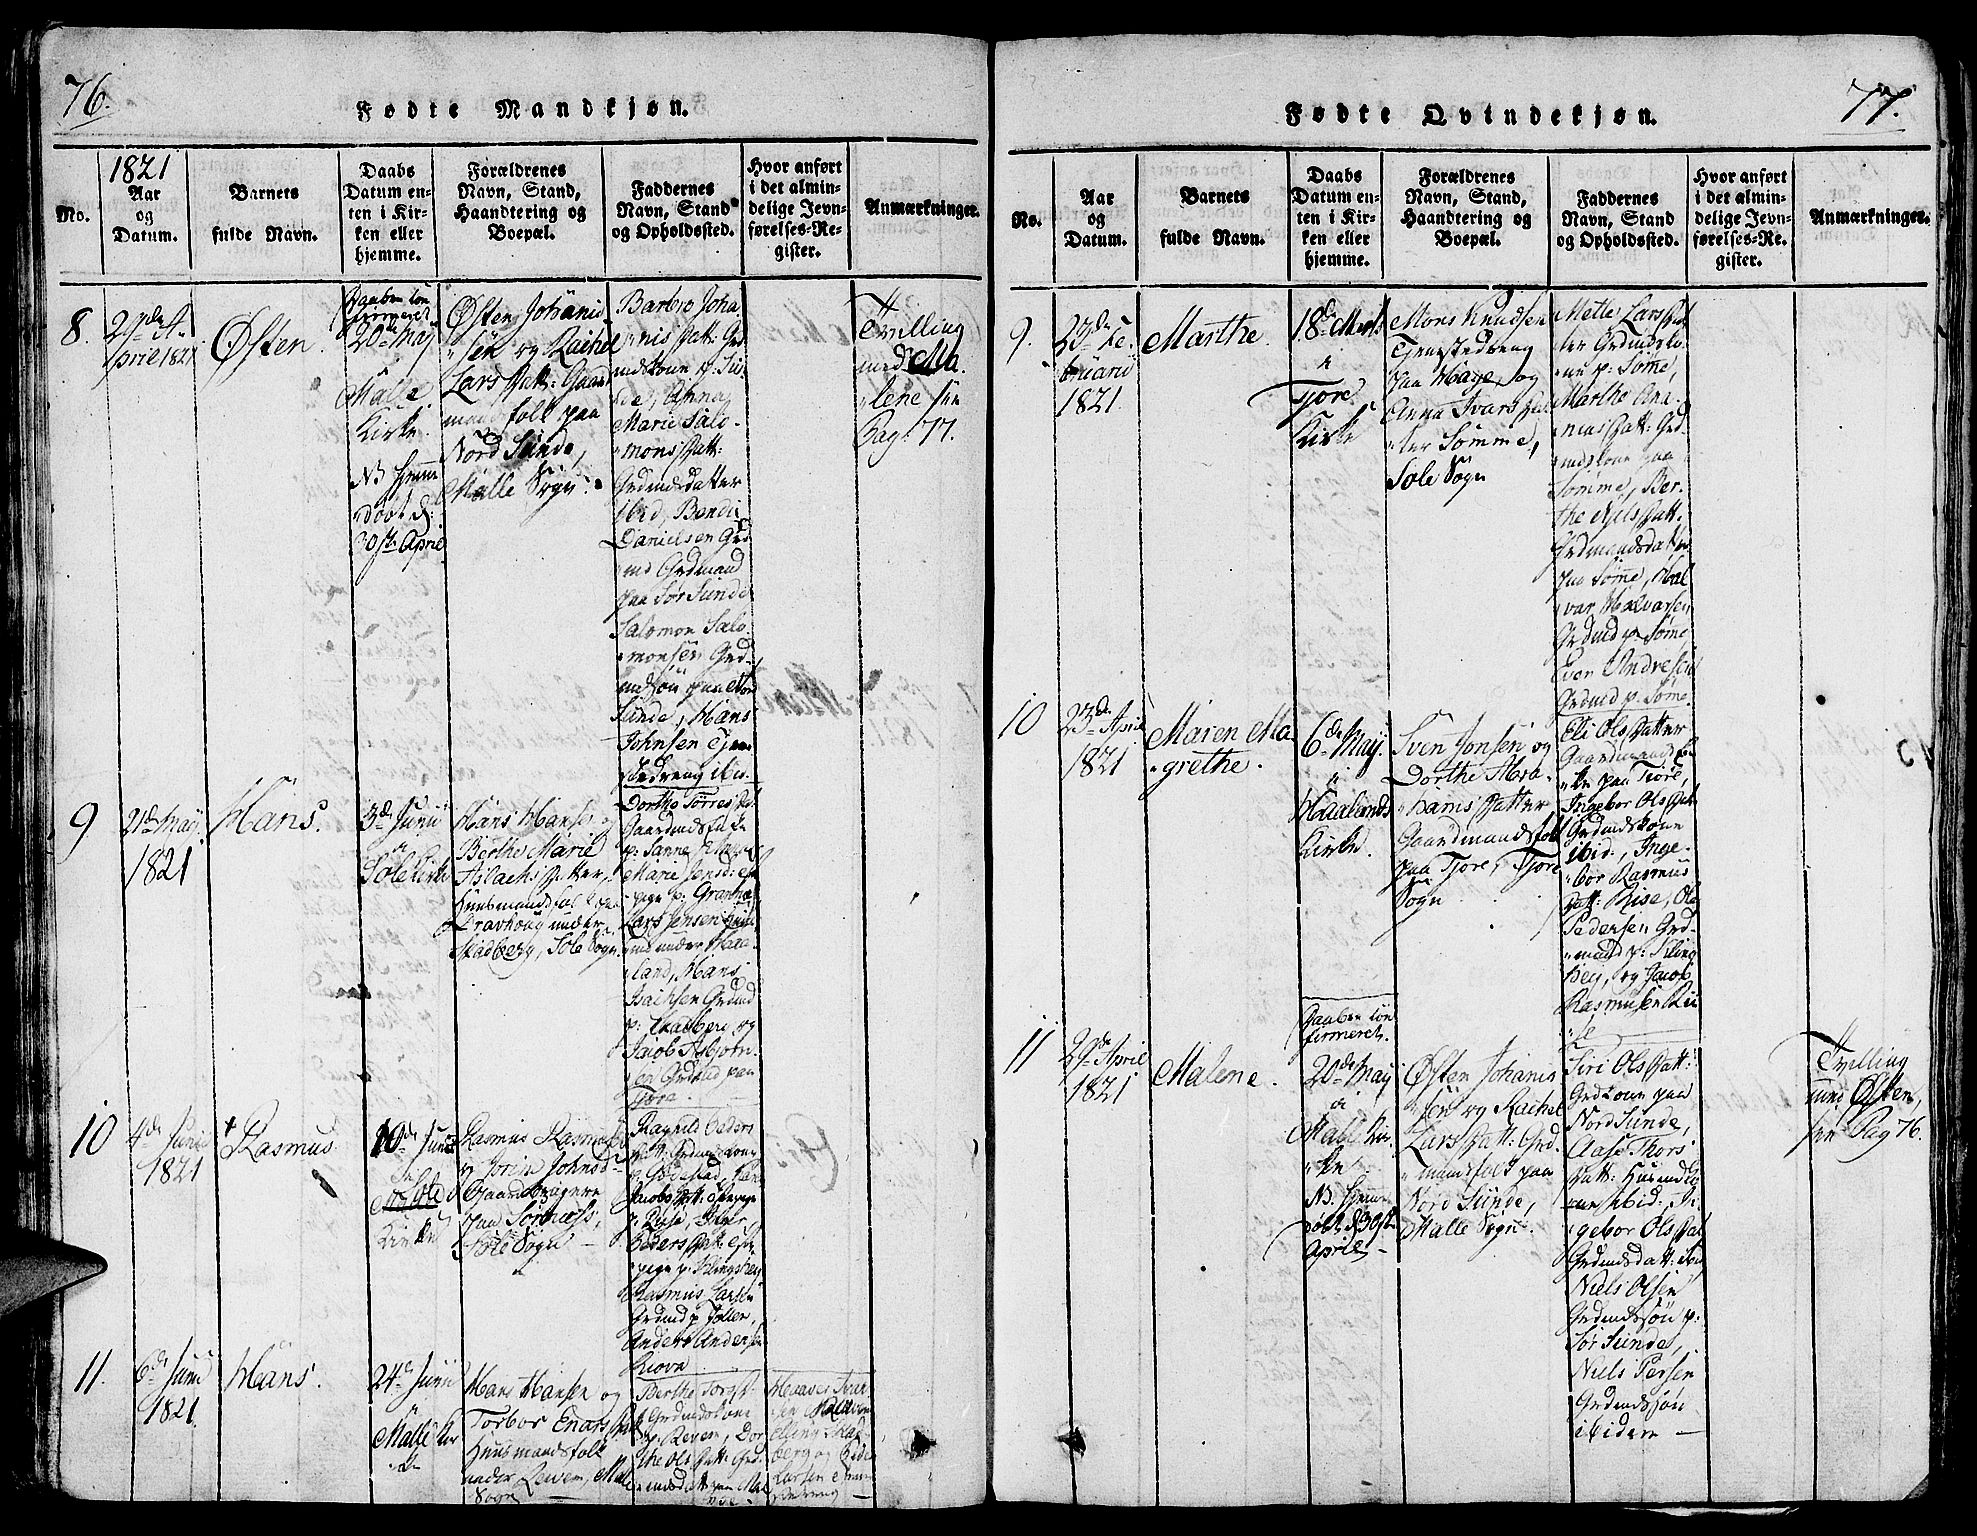 76.
Fødte Mandkjøn.
No.
1821
Aar
og
Datum.
Barnets
fulde Navn.
Daabs
Datum en-
ten i Kir-
ken eller
hjemme.
Forældrenes
Navn, Stand,
Haandtering og
Boepæl.
Faddernes
Navn, Stand
og Opholdssted.
Hvor anført
i det almin-
delige Jevn-
førelses-Re-
gister.
Anmærkninger.
8.
29de A-
pril 1821
Østen
Daaben con
firmeret
20de Maij
i
Malle
Kirke.
NB hjemme
døbt d:
30te April
Østen Johanis
sen og Rachel
Lars Datt: Gaard
mandsfolk paa
Nord Sunde,
Malle Sogn.
Barbro Joha
nis Datt: Grd
mdskone p. Sun
de, Anna
Marie Salo-
mons Datt:
Grdmdsdatter
ibid, Bendix
Danielsen Grd
md Grdmand
paa Sør Sunde
Salomon Salo-
monsen Grd-
mdsøn paa Nord
Sunde, Hans
Johnsen Tjene
stedreng ibid.
Tvilling
med Ma
lene sen
Pag: 77.
9
21de Maij
1821
Hans.
3de Junii
i
Sole Kirke
Hans Hansen og
Berthe Marie
Aslachs Datter,
Huusmandsfolk paa
Gravhoug under
Stadberg, Sole Sogn.
Dorthe Torres Dat
Gaardmdsfolk
p: Sanne
Marie Jensd:
pige p: Grannæs
Lars Jensen
md under Haa-
land, Hans
Isachsen Grdmd
p: Stadberg og
Jacob Asbjørn-
sen Grdmd paa
Tjore.
10
4de Junii
1821
+
Rasmus
10de Junii
i
Sole
Kirke
Rasmus Rasmussen
og Jorina Johnsd:
Gaardbrugere
paa Sørnæss,
Sole Sogn
Ragnild Peders
Datt: Grdmdskone
p Gødestad,
Jacobs Datt:
p: Risse,
Peders Datt:
pige p: Klingsheij
Rasmus Larsen
Grdmd p Jollen,
Anders Andersen
11.
6de Junii
1821.
Hans.
24de Junii
i
Malle Kir
ke
Hans Hansen og
Torbor Enars Dat
Huusmandsfolk
under Reveem, Malle
Sogn
Berthe Torgst
Grdmdskone
p. Revem, Dor
the Ols Datt: Grd-
mdsdatt paa Mal
Haaver Iver
sen
Larsen
77.
Fødte Qvindekjøn.
No.
Aar
og
Datum.
Barnets
fulde Navn.
Daabs
Datum en-
ten i Kir-
ken eller
hjemme.
Forældrenes
Navn, Stand,
Haandtering og
Boepæl.
Faddernes
Navn, Stand
og Opholdssted.
Hvor anført
i det almin-
delige Jevn-
førelses-Re-
gister.
Anmærkninger.
9.
23de Fe-
bruarii
1821.
Marthe.
18de Marts
i
Tjore
Kirke
Mons Knudsen
Tjenestedreng
paa Hage, og
Anna Ivars Dat
ter Sømme,
Sole Sogn
Mette Lars Dat
ter Grdmdsko-
ne p: Sømme,
Marthe Ana-
nias Datt: Grd-
mdskone paa
Sømme, Ber-
the Niels Datt:
Grdmandsdatter
paa Sømme, Hal
var Halvorsen
Grdmd p Sømme
Even Andresen
Grdmd p. Sømme.
10
23de April
1821
Maren Ma-
grethe.
6de Maij.
i
Haalands
Kirke.
Sven Jonsen og
Dorthe Abra-
hams Datter
Gaardmandsfolk
paa Tjore, Tjore
Sogn
Eli Ols Datter
Gaardmandsk-
ke paa Tjore,
Ingebor Ols Dat
Grdmdskone
ibid., Inge-
bor Rasmus
Datt: Risse, Ole
Pedersen Grd-
mand p: Kling
heij, og Jacob
Rasmussen Rii
se
11
29de April
1821
Malene.
Daaben con
firmeret.
20de Maij
i
Malle Kir-
ke
NB. hjemme
døbt d 30te
April
Østen Johanis
sen og Rachel
Lars Datt: Grd-
mandsfolk paa
Nord Sunde,
Malle Sogn.
Siri Ols Datt:
Grdkone paa
Nord Sunde,
Aase Thors
Datt: Huusmdsko
ne ibid: In-
gebor Ols Dat
Grdmdsdatt:
Niels Olsen
Grdmdssøn p:
Sør Sunde,
Niels Persen
Grdmdssøn
ibidem
Tvilling
med Østen,
sen Pag 76.